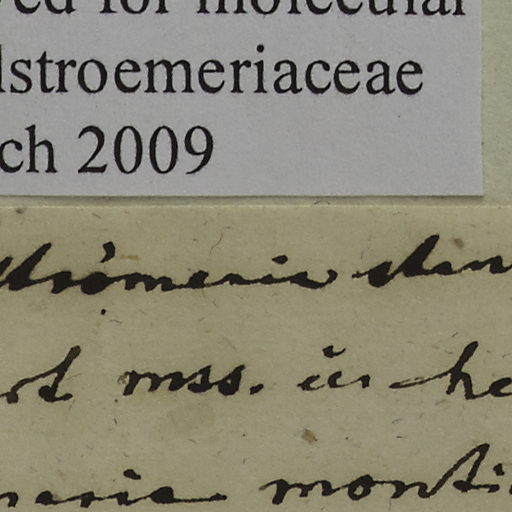 ved for molecular
lstroemeriaceae
ch 2009
strömeria
mss. in he
meria monti